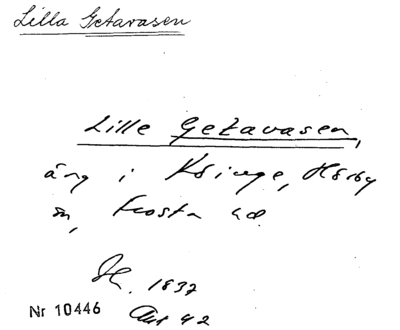 Lilla Getavasen
Lille Getavasen,
äng i Ksinge, Hörby
sn, Frosta hd.
1837
Nr 10446 Akt 42